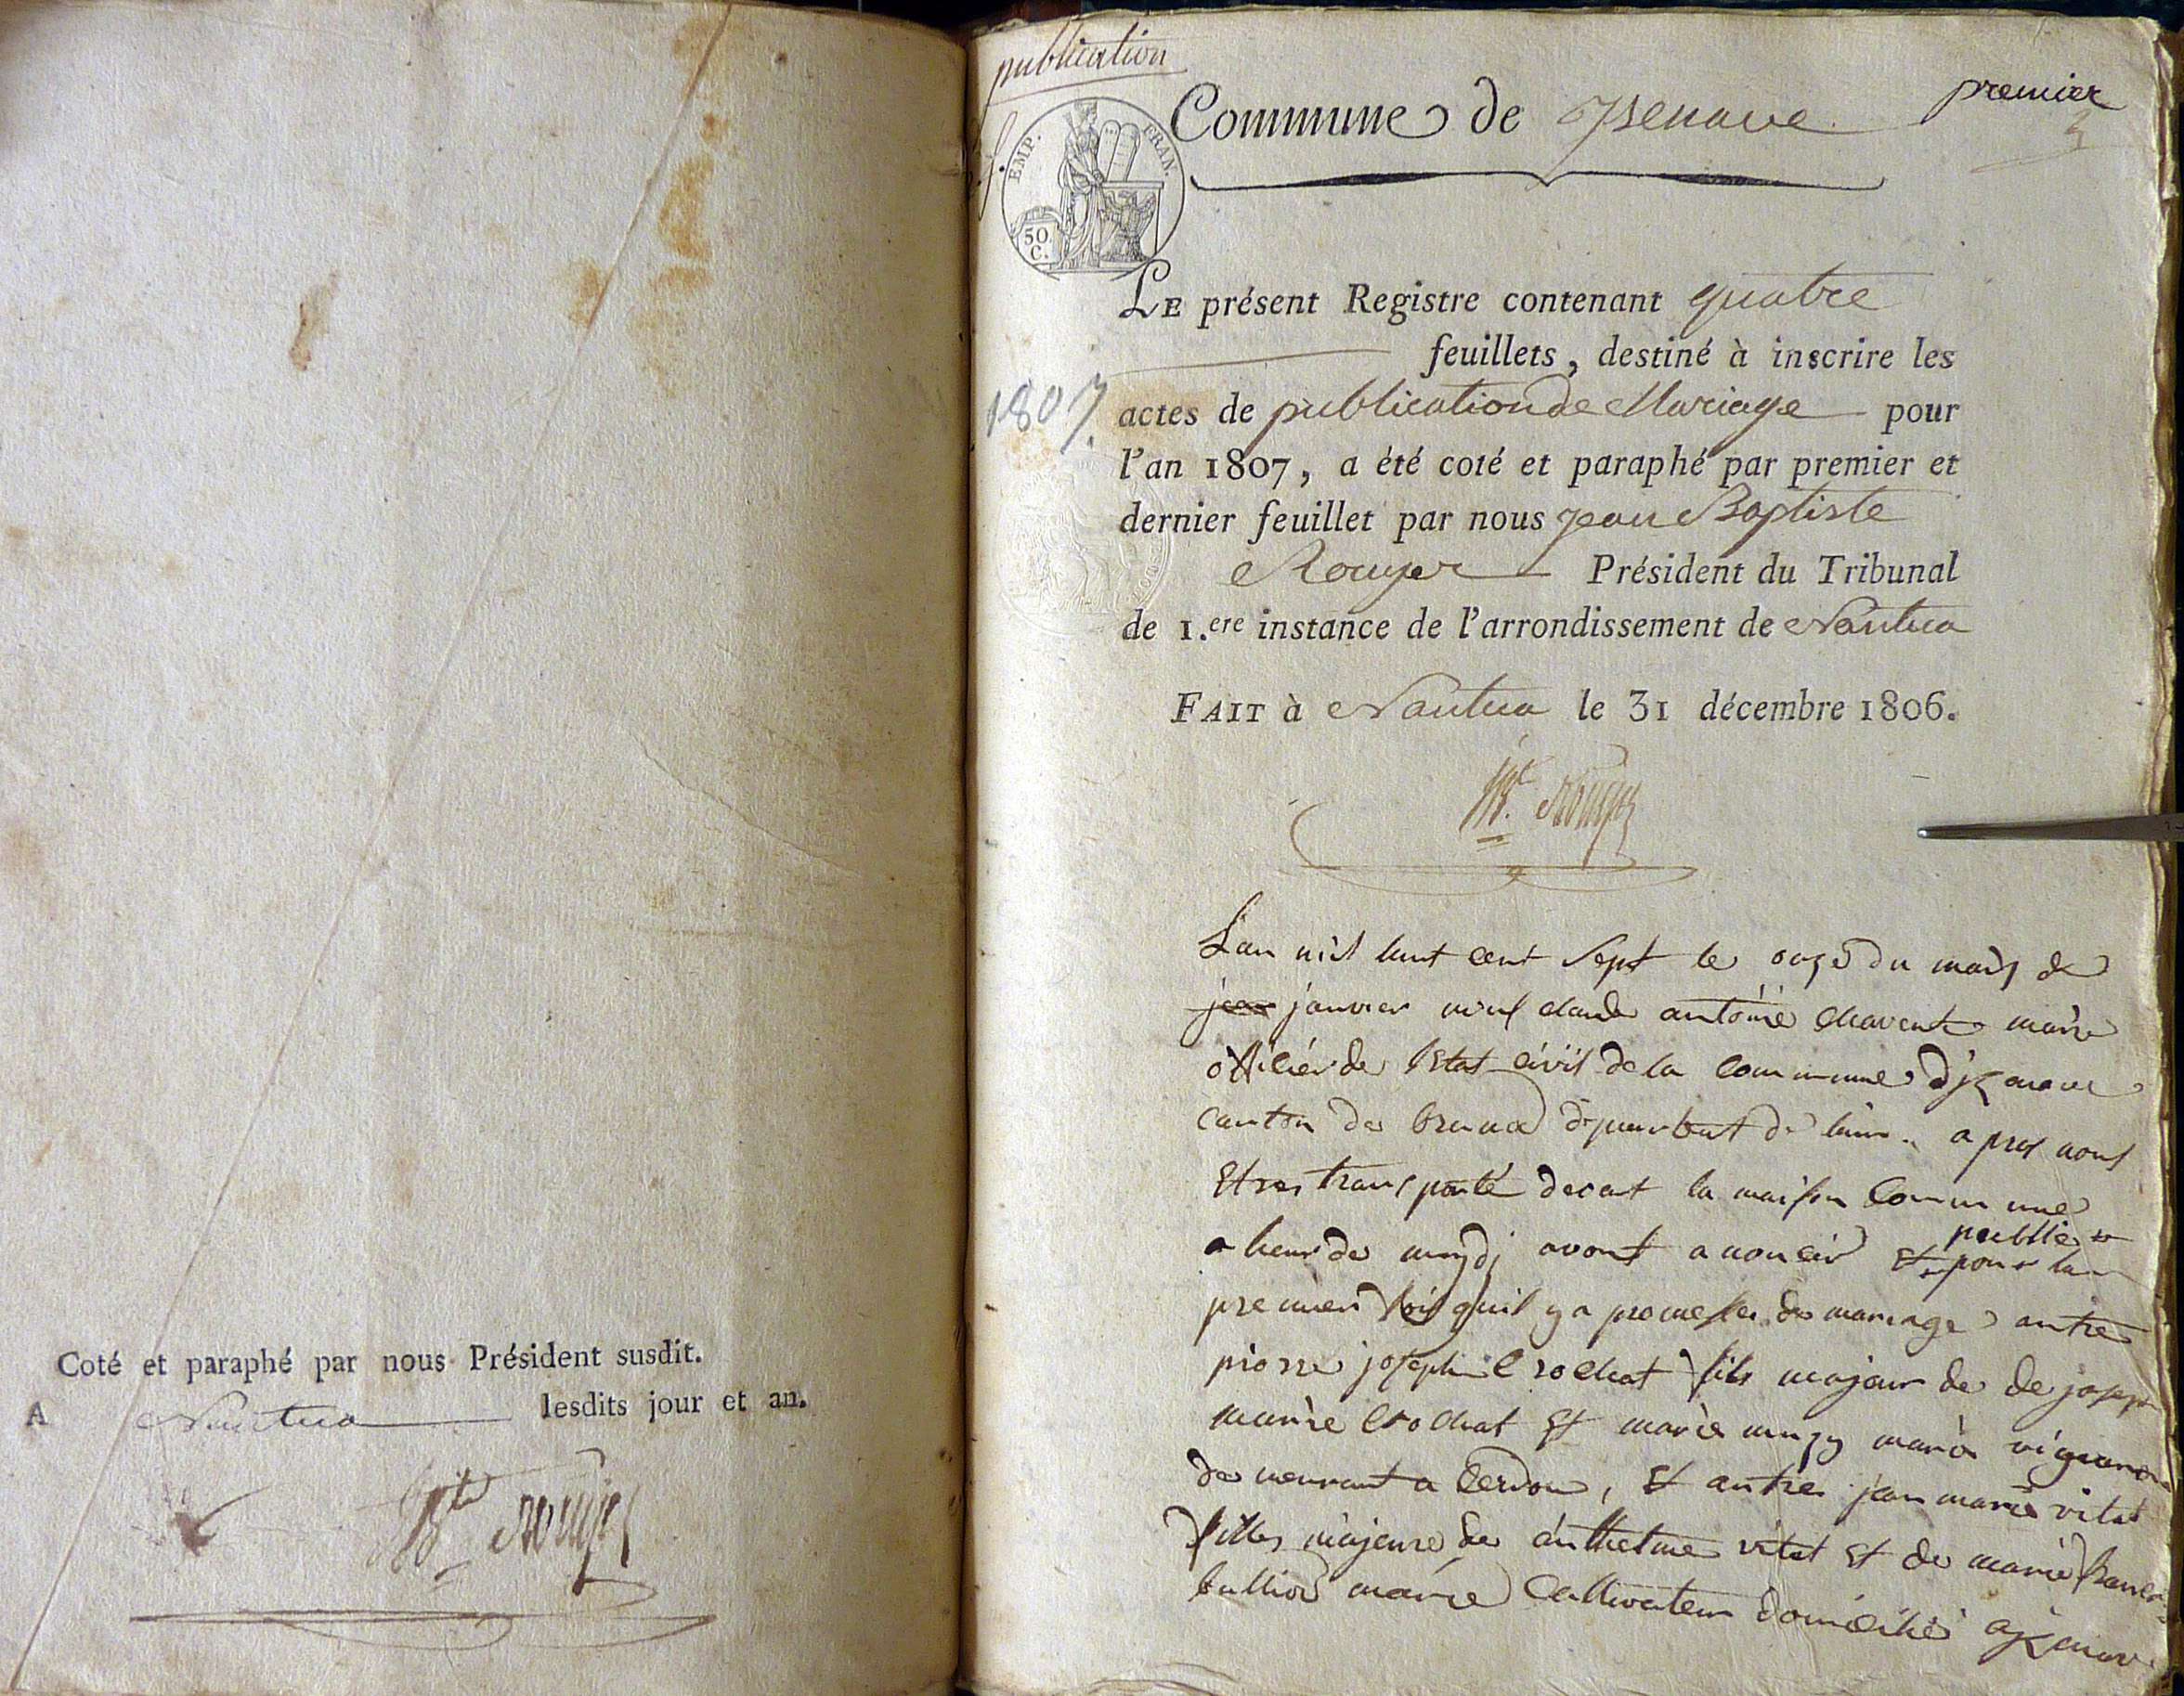 Coté et paraphé par nous Président susdit.
A Nantua lesdits jour et an.
Bte Rouyer
publication
premier
Commune de Izenave
EMP. FRAN.
50 C.
LE présent Registre contenant quatre
feuillets, destiné à inscrire les
1807.
actes de publication de Mariage pour
l'an 1807, a été coté et paraphé par premier et
dernier feuillet par nous jean Baptiste
Rouyer Président du Tribunal
de 1.ere instance de l'arrondissement de Nantua
FAIT à Nantua le 31 décembre 1806.
Bte Rouyer
Lan mil huit cent sept le onze du mois de
jean janvier nous claude antoine Chavent maire
officier de lEtat civil de la Commune dizenave
canton de brenod department de lain apres nous
Etres transporté devent la maison Commune
a heur de mydi avont anoncer Et publier
pour la
premier fois quil y a promesse de mariage antre
pierre joseph Crochat fils majeur de de joseph
marie Crochat Et marie muzy marié vigneron
demeurant a Cerdon, Et antre jean marie vitet
filles majeure de anthelme vitet Et de marie
bullion marié Cultivateur domicilié a izenave